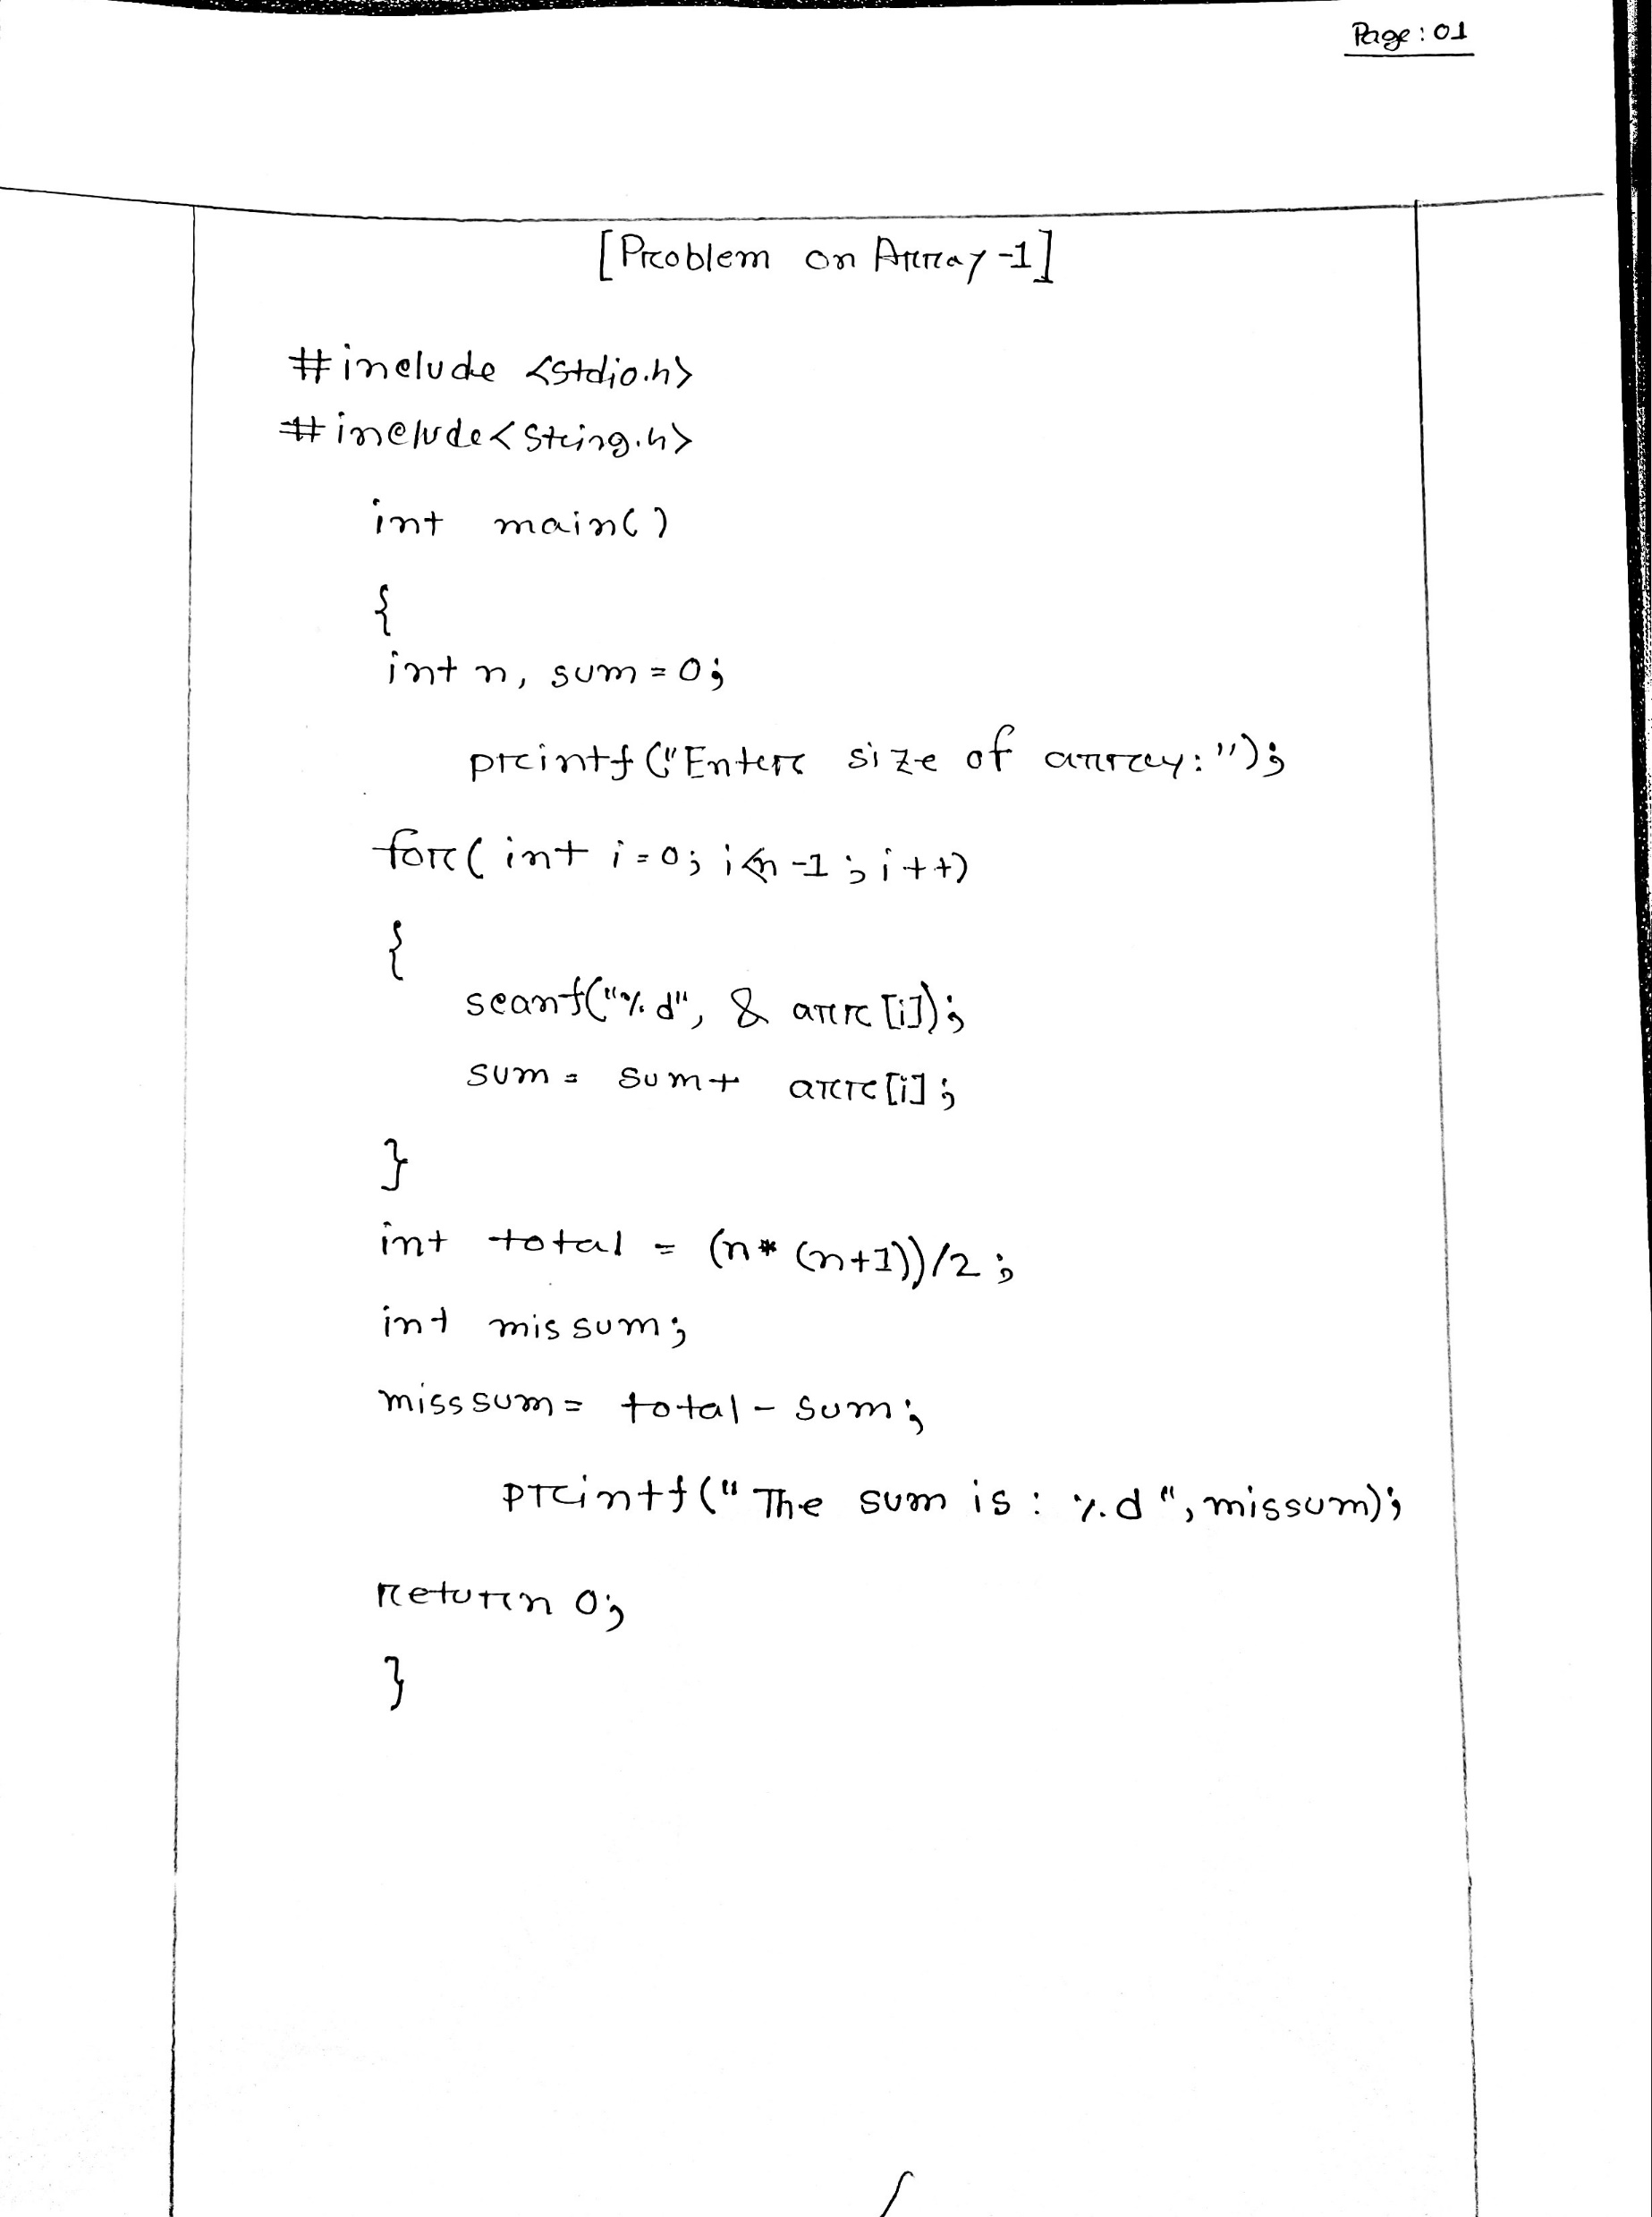 Page: 01
[Problem on Array-1]
#include <stdio.h>
#include<string.h>
int main()
{
int n, sum = 0;
printf("Enter size of array:");
for( int i=0; i<n-1; i++)
{
scanf("%d", & arr[i]);
sum = sum+ arr[i];
}
int total = (n* (n+1))/2;
int missum;
misssum = total - sum;
printf("The sum is: %d", missum);
return 0;
}